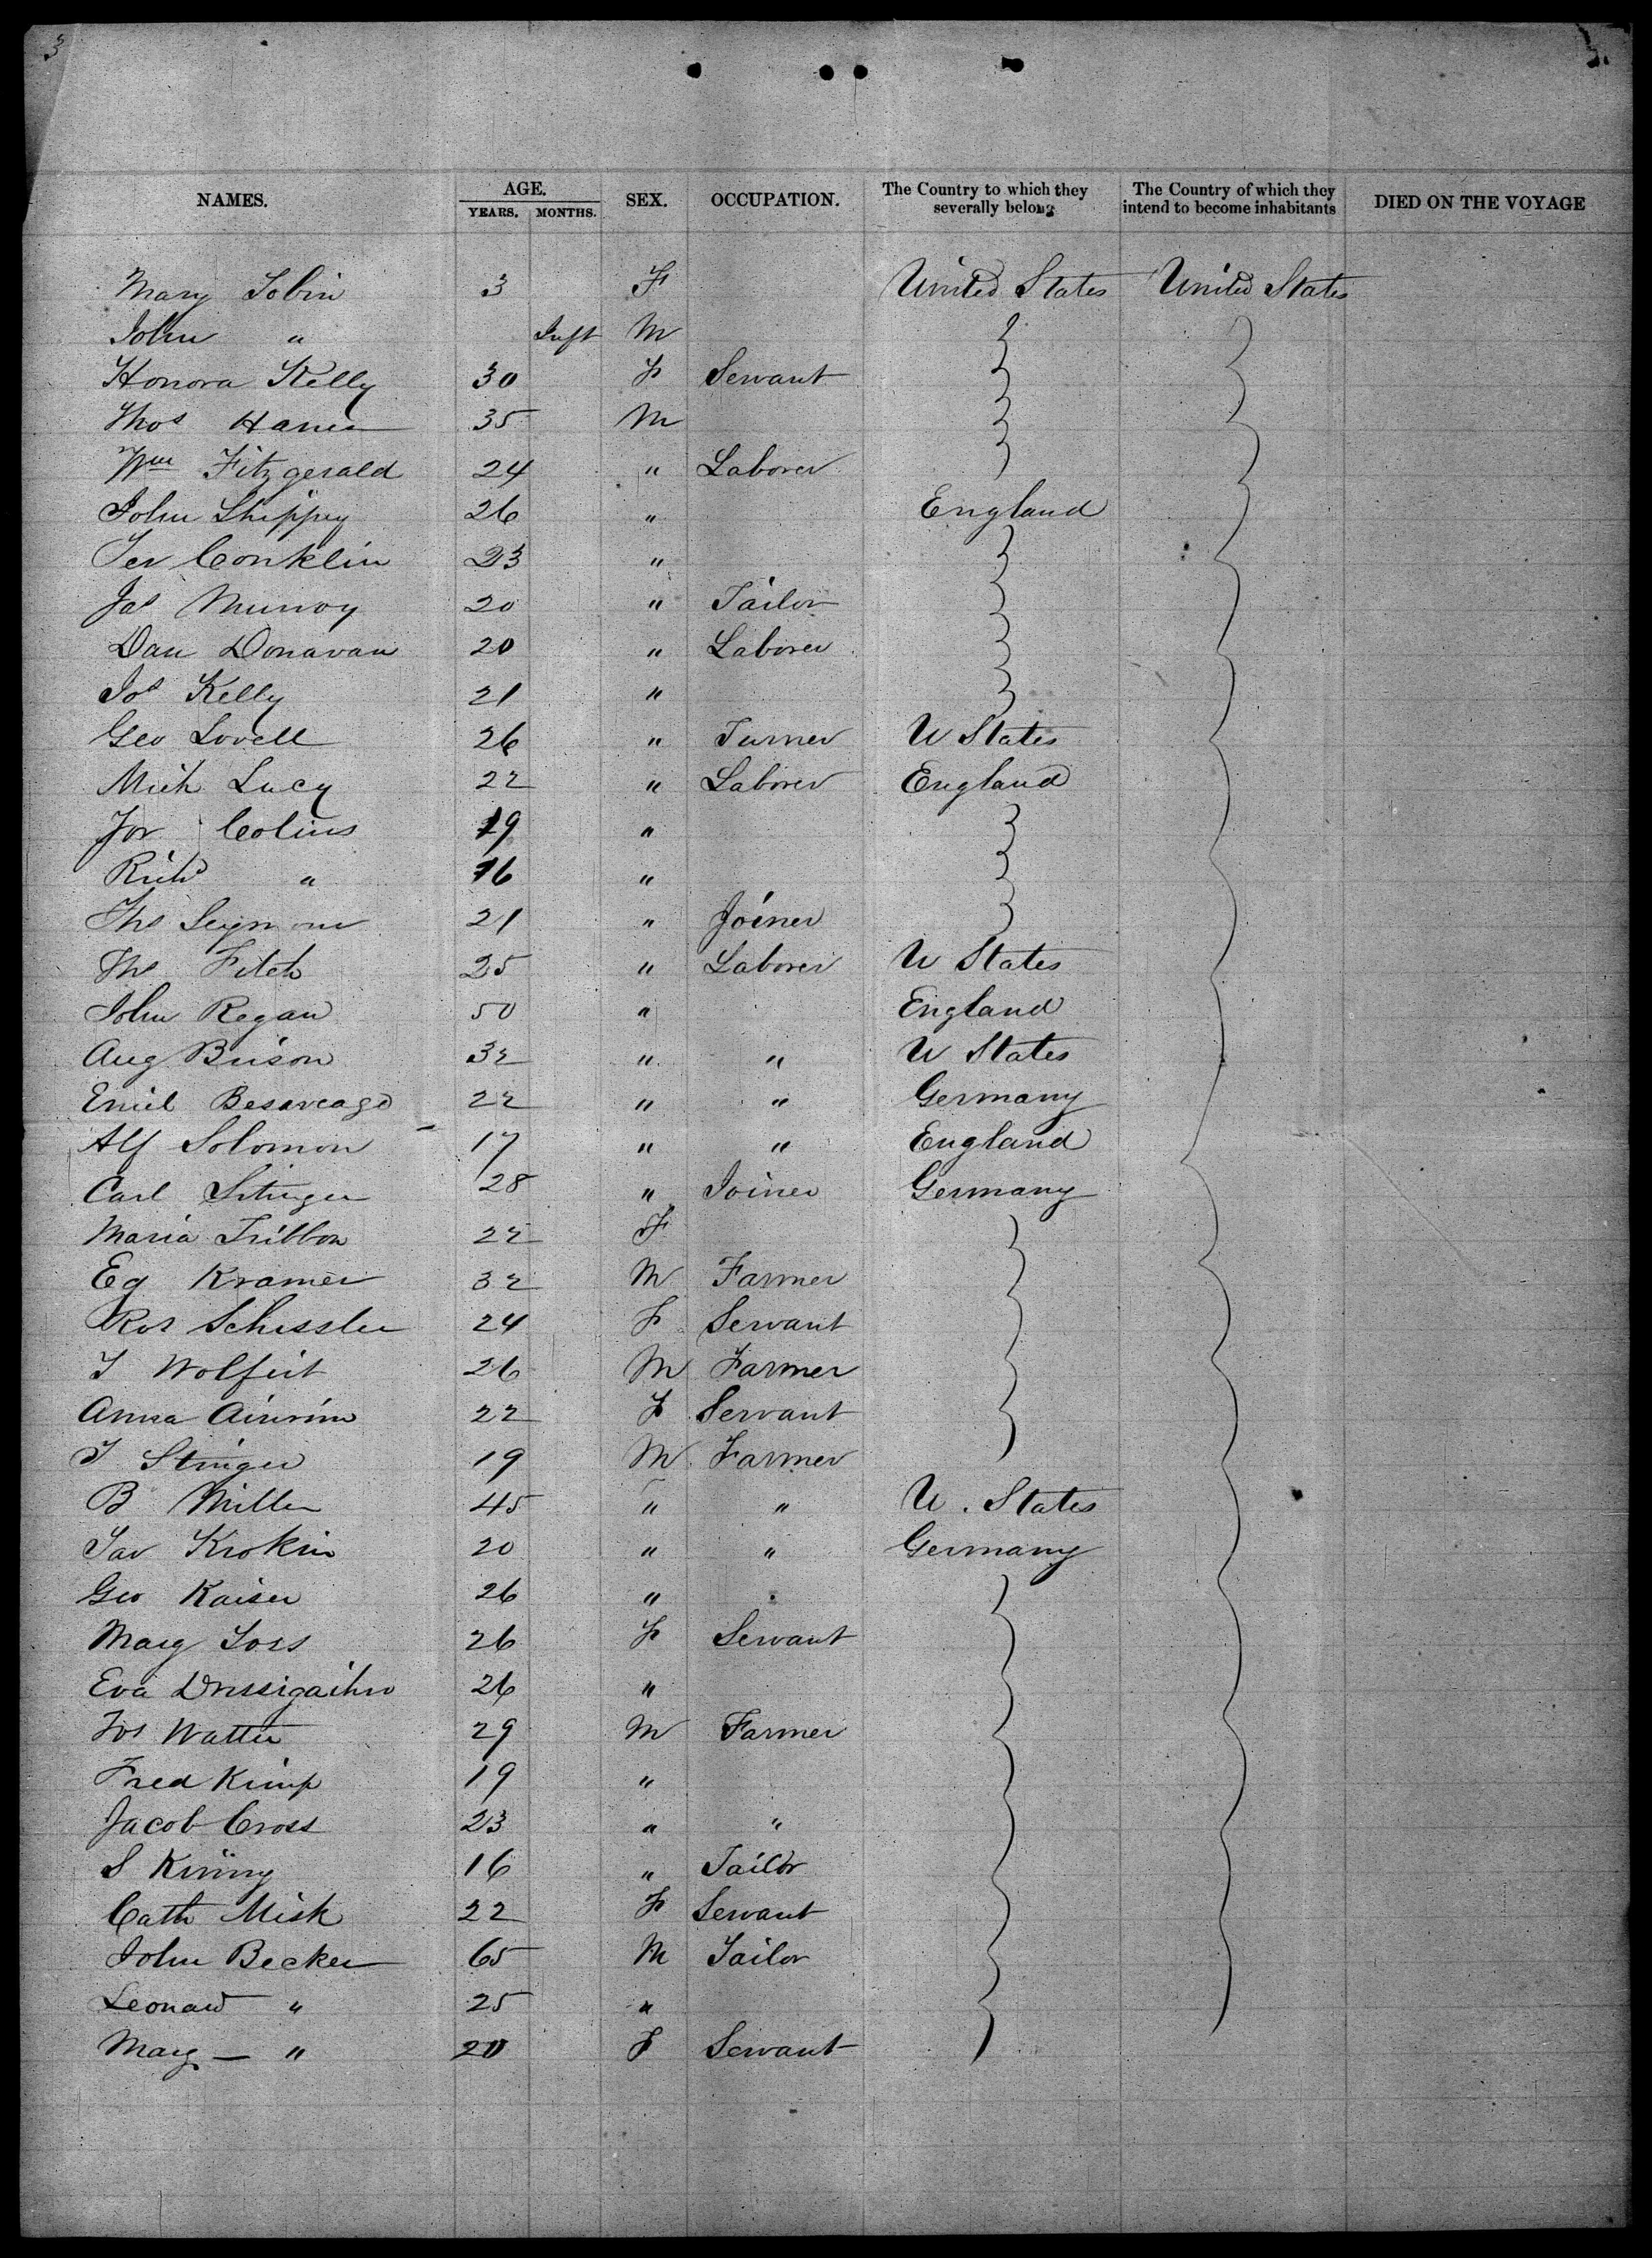 3
NAMES. AGE. YEARS. MONTHS. SEX. OCCUPATION. The Country to which they severally belong. The Country of which they intend to become inhabitants DIED ON THE VOYAGE
Mary Tobin 3 F United States United States
John " Inft M
Honora Kelly 30 F Servant
Thos 35 M
Wm Fitzgerald 24 " Laborer
John Shippey 26 " England
Jer Conklin 23 "
Jas Munroy 20 " Tailor
Dan Donavan 20 " Laborer
Jos Kelly 21 "
Geo Lovell 26 " Turner U States
Mich Lucy 22 " Laborer England
Jer Colins 19 "
Richd " 16 "
Ths Seymour 21 " Joiner
Ths Fitch 25 " Laborer U States
John Regan 50 " England
Aug Brison 32 " " U States
Emil 22 " " Germany
Alf Solomon 17 " " England
Carl 28 " Joiner Germany
Maria Tribbon 22 F
Eg Kramer 32 M Farmer
Ros Schissler 24 F Servant
J Wolfirt 26 M Farmer
Anna 22 F Servant
J Stinger 19 M Farmer
B Miller 45 " " U. States
Jav Krokin 20 " " Germany
Geo Kaiser 26 " "
Marg Joss 26 F Servant
Eva 26 "
Jos Watter 29 M Farmer
Fred Kimp 19 "
Jacob Cross 23 " "
S 16 " Tailor
Cath Misk 22 F Servant
John Becker 65 M Tailor
Leonard " 25 "
Marg — " 20 F Servant